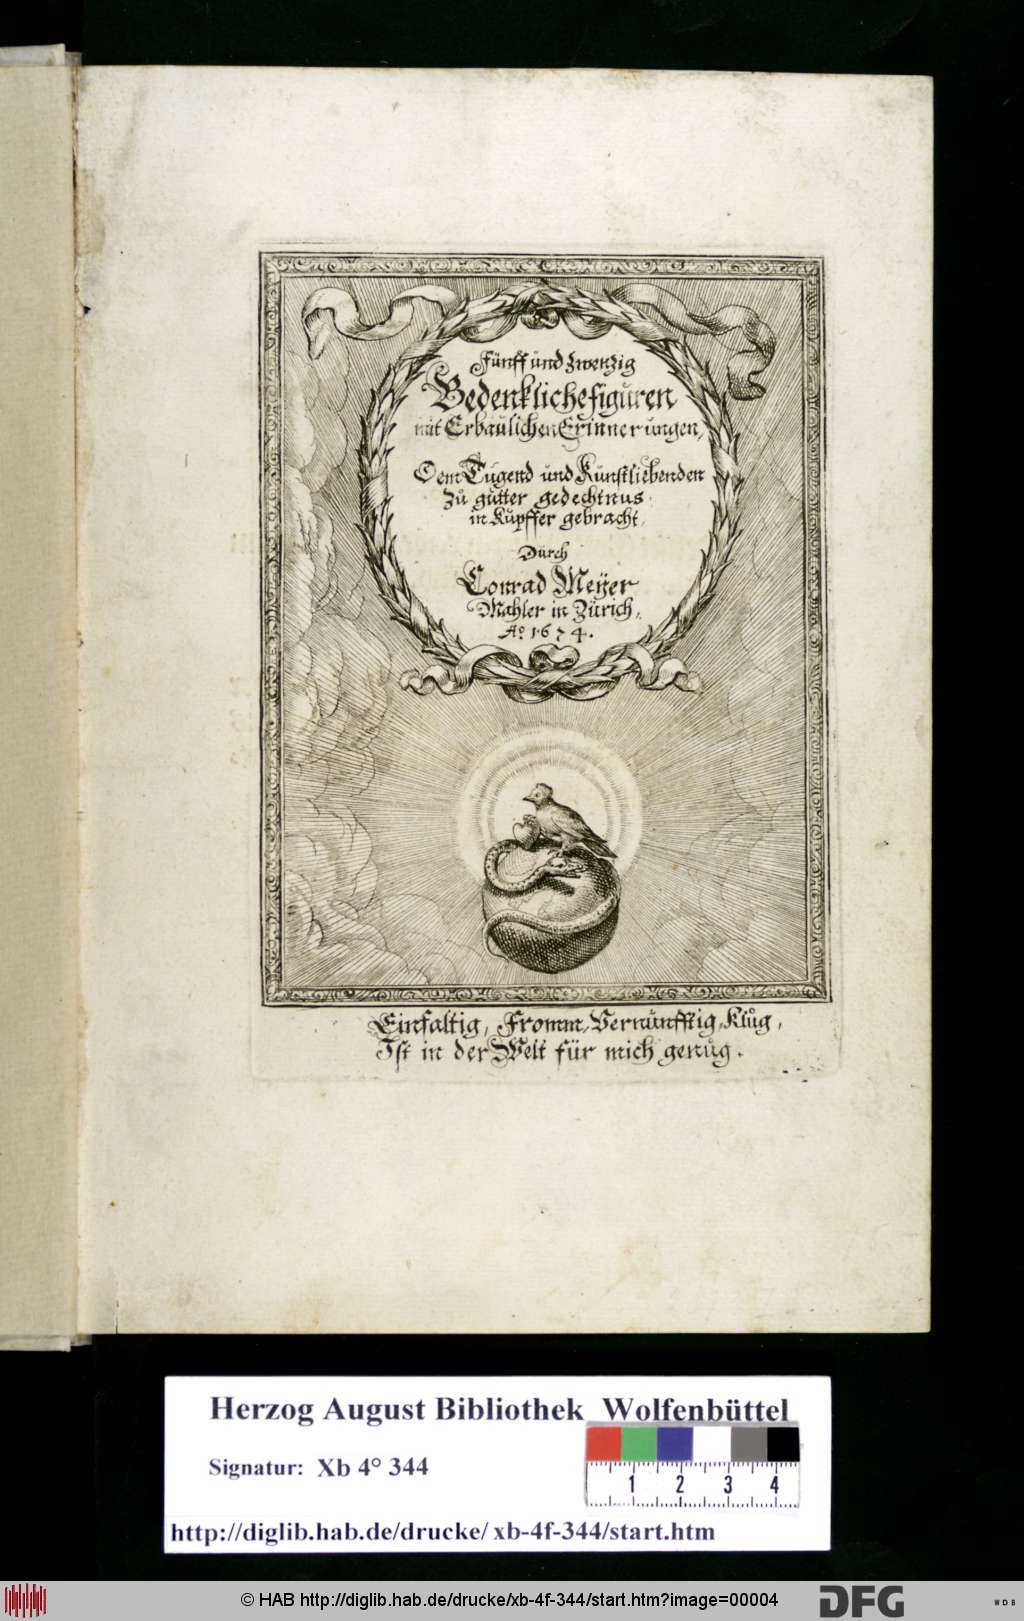 Fünff und zwenzig
Bedenkliche figuren
mit Erbaulichen Erinnerungen,
Dem Tugend und Kunstliebenden
zů gůtter gedechtnus
in Kupffer gebracht,
Durch
Conrad Meÿer
Mahler in Zürich,
Aº 1674.
Einfaltig, Fromm, Vernünfftig, Klůg,
Ist in der Welt für mich genůg.
Herzog August Bibliothek Wolfenbüttel
Signatur: Xb 4° 344
1 2 3 4
http://diglib.hab.de/drucke/xb-4f-344/start.htm
© HAB http://diglib.hab.de/drucke/xb-4f-344/start.htm?image=00004
DFG
WDB